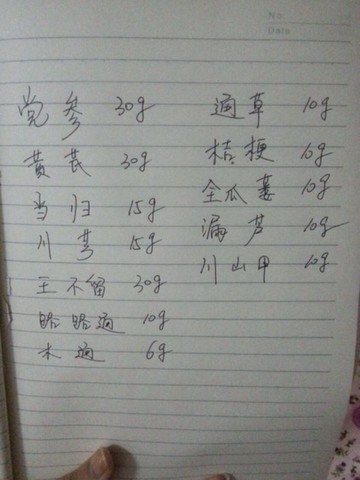 No
Date
党参 30g
黄芪 30g
当归 15g
川芎 15g
王不留 30g
路路通 10g
木通 6g
通草 10g
桔梗 10g
全瓜蒌 10g
漏芦 10g
川山甲 10g